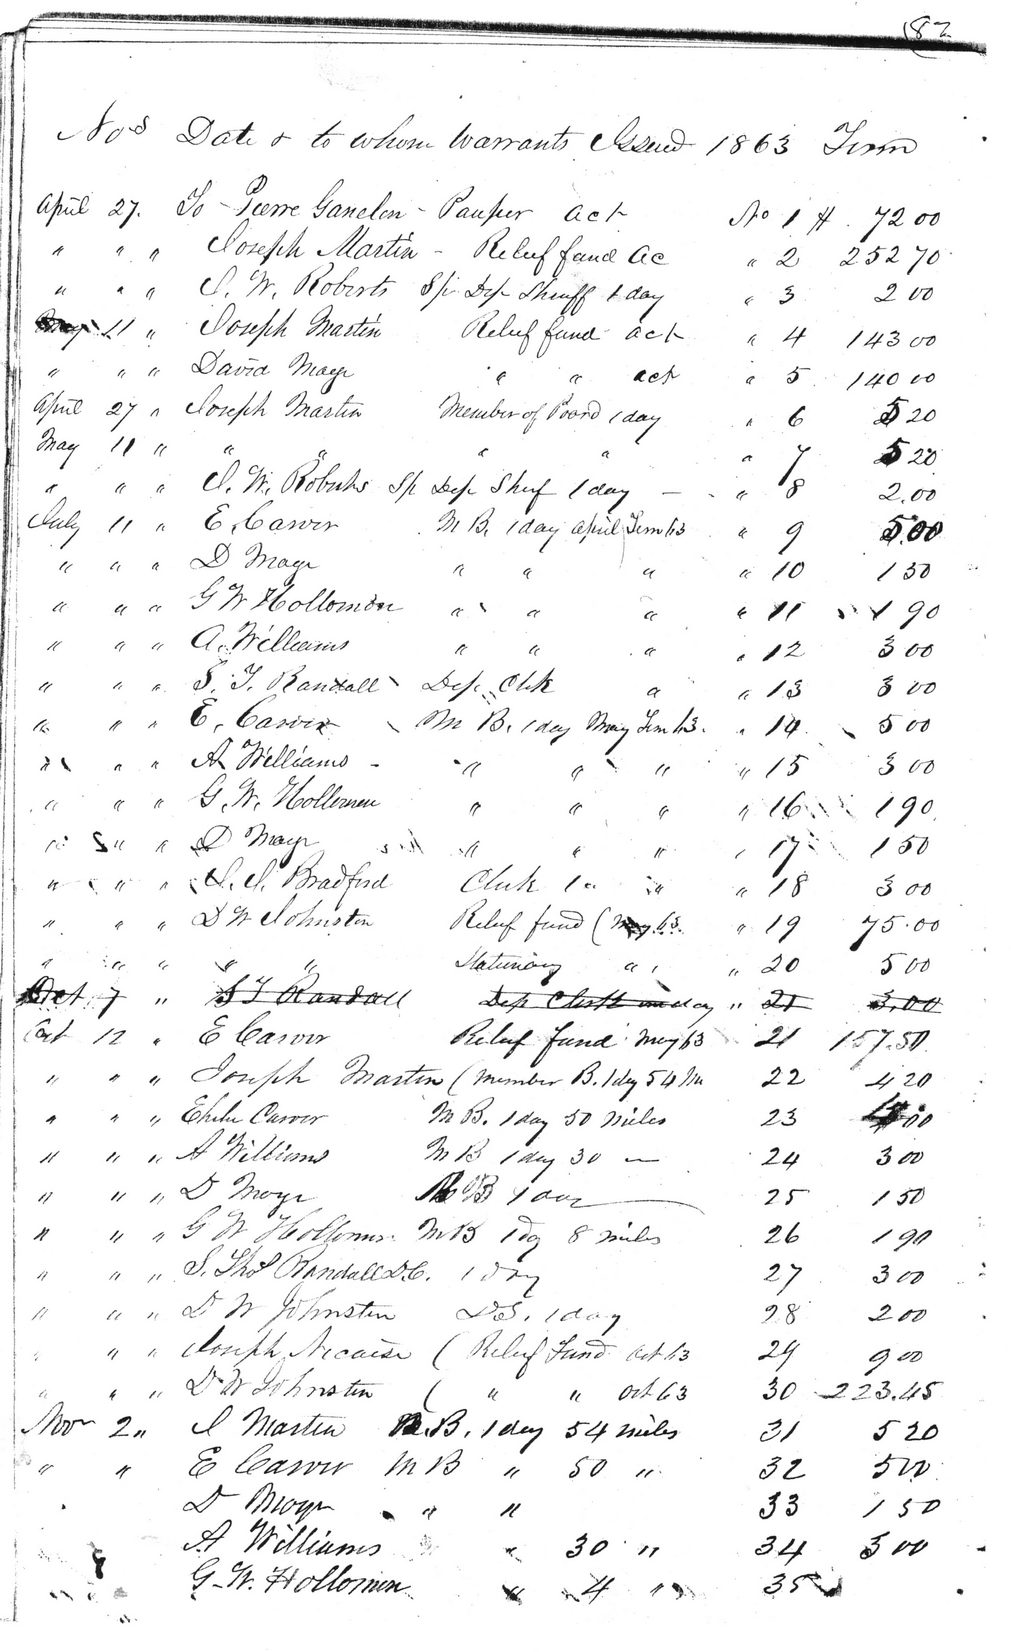 82
Nos Date & to whom Warrants Issued 1863 Term
April 27. To Pierre Ganelon - Pauper act No 1 $ 72 00
" " " Joseph Martin - Relief fund ac " 2 252 70
" " " S. W. Roberts Sp Dep Sheriff 1 day " 3 2 00
May 11 " Joseph Martin Relief fund act " 4 143 00
" " " David Moyr " " act " 5 140 00
April 27 " Joseph Martin Member of Board 1 day " 6 5 20
May 11 " " " " " " 7 5 20
" " " S. W. Roberts Sp Dep Sherf 1 day — " 8 2.00
July 11 " E. Carver M B. 1 day April Term 63 " 9 5.00
" " " D Moyr " " " " 10 1 50
" " " G W Hollomon " " " " 11 1 90
" " " A. Williams " " " " 12 3 00
" " " S. T. Randall Dep. Clk " " 13 3 00
" " " E. Carver M B. 1 day May Term 63. " 14 5 00
" " " A Williams - " " " " 15 3 00
" " " G. W. Hollomon " " " " 16 1 90
" " " D Moyr " " " " 17 1 50
" " " S. S. Bradford Clerk 1 " " " 18 3 00
" " " D W Johnston Relief fund (May 63. " 19 75.00
" " " " " Stationary " " " 20 5 00
Oct 7 " S T Randall Dep Clerk one day " 21 3.00
Oct 12 " E Carver Relief fund May 63 21 157.50
" " " Joseph Martin (Member B. 1 day 54 M 22 4 20
" " " Ehihu Carver M B. 1 day 50 miles 23 00
" " " A Williams M B 1 day 30 — 24 3 00
" " " D Moyr M B 1 day 25 1 50
" " " G W Hollomon M B 1 day 8 miles 26 1 90
" " " S. Thos Randall D.C. 1 Day 27 3 00
" " " D W Johnston D.S. 1 day 28 2 00
" " " Joseph Necaise (Relief Fund Oct 63 29 9 00
" " " D W Johnston ( " " Oct 63 30 223.45
Novr 2 " J Martin M.B. 1 day 54 miles 31 5 20
" " E Carver M B " 50 " 32 5 00
D Moyr " " 33 1 50
A Williams " 30 " 34 3 00
G. W. Hollomon " 4 " 35